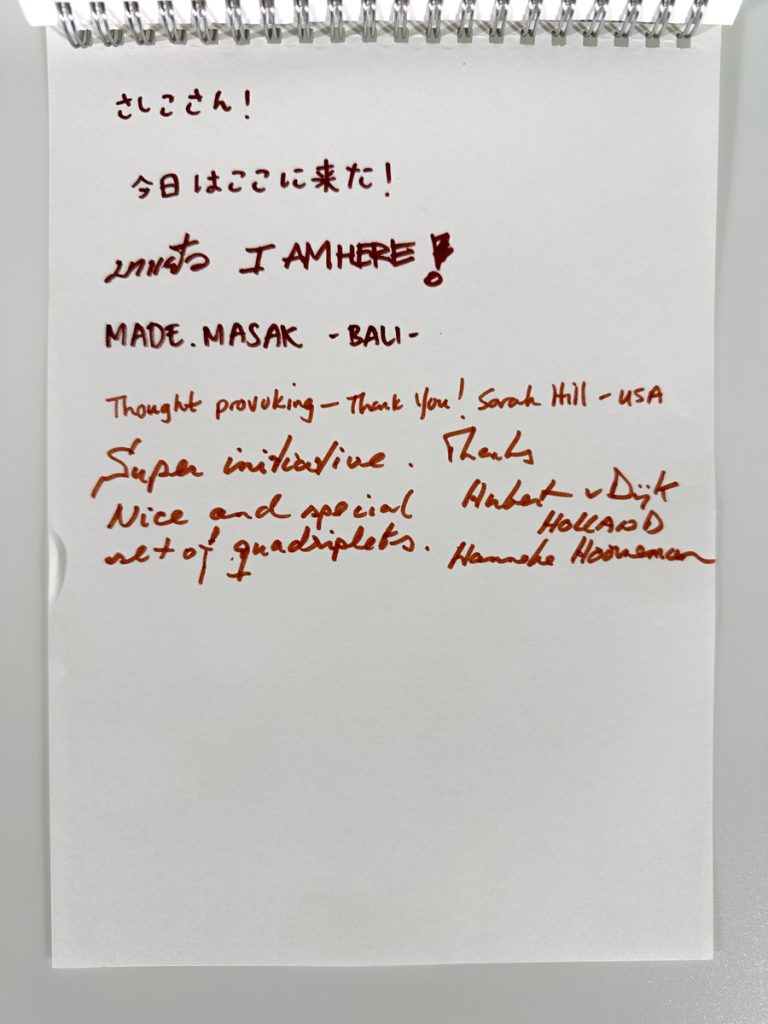 さしこさん！
今日はここに来た！
มาแล้ว I AM HERE!
MADE. MASAK - BALI -
Thought provoking – Thank You! Sarah Hill - USA
Super initiative. Thanks
Nice and special Hubert v Dijk
HOLLAND
set of quadriplets. Hanneke